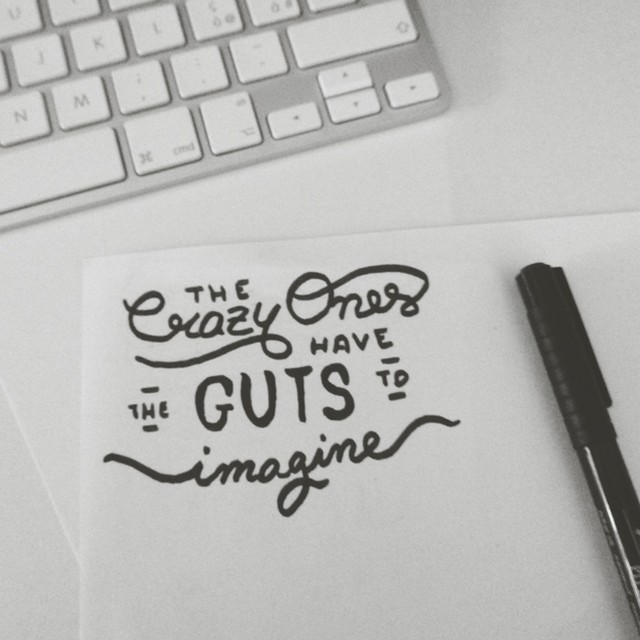 U
J K L
N M
⌘ cmd
THE
Crazy Ones
HAVE
THE GUTS TO
imagine